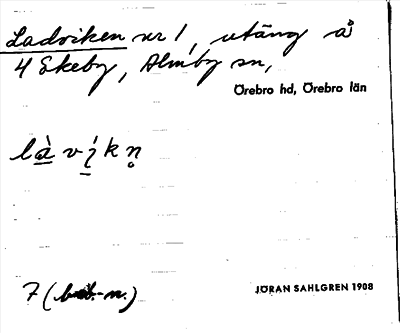 Ladviken nr 1, utäng å
4 Ekeby, Almby sn,
Örebro hd, Örebro län
là víkn̥
7 (b.-n.)
JÖRAN SAHLGREN 1908